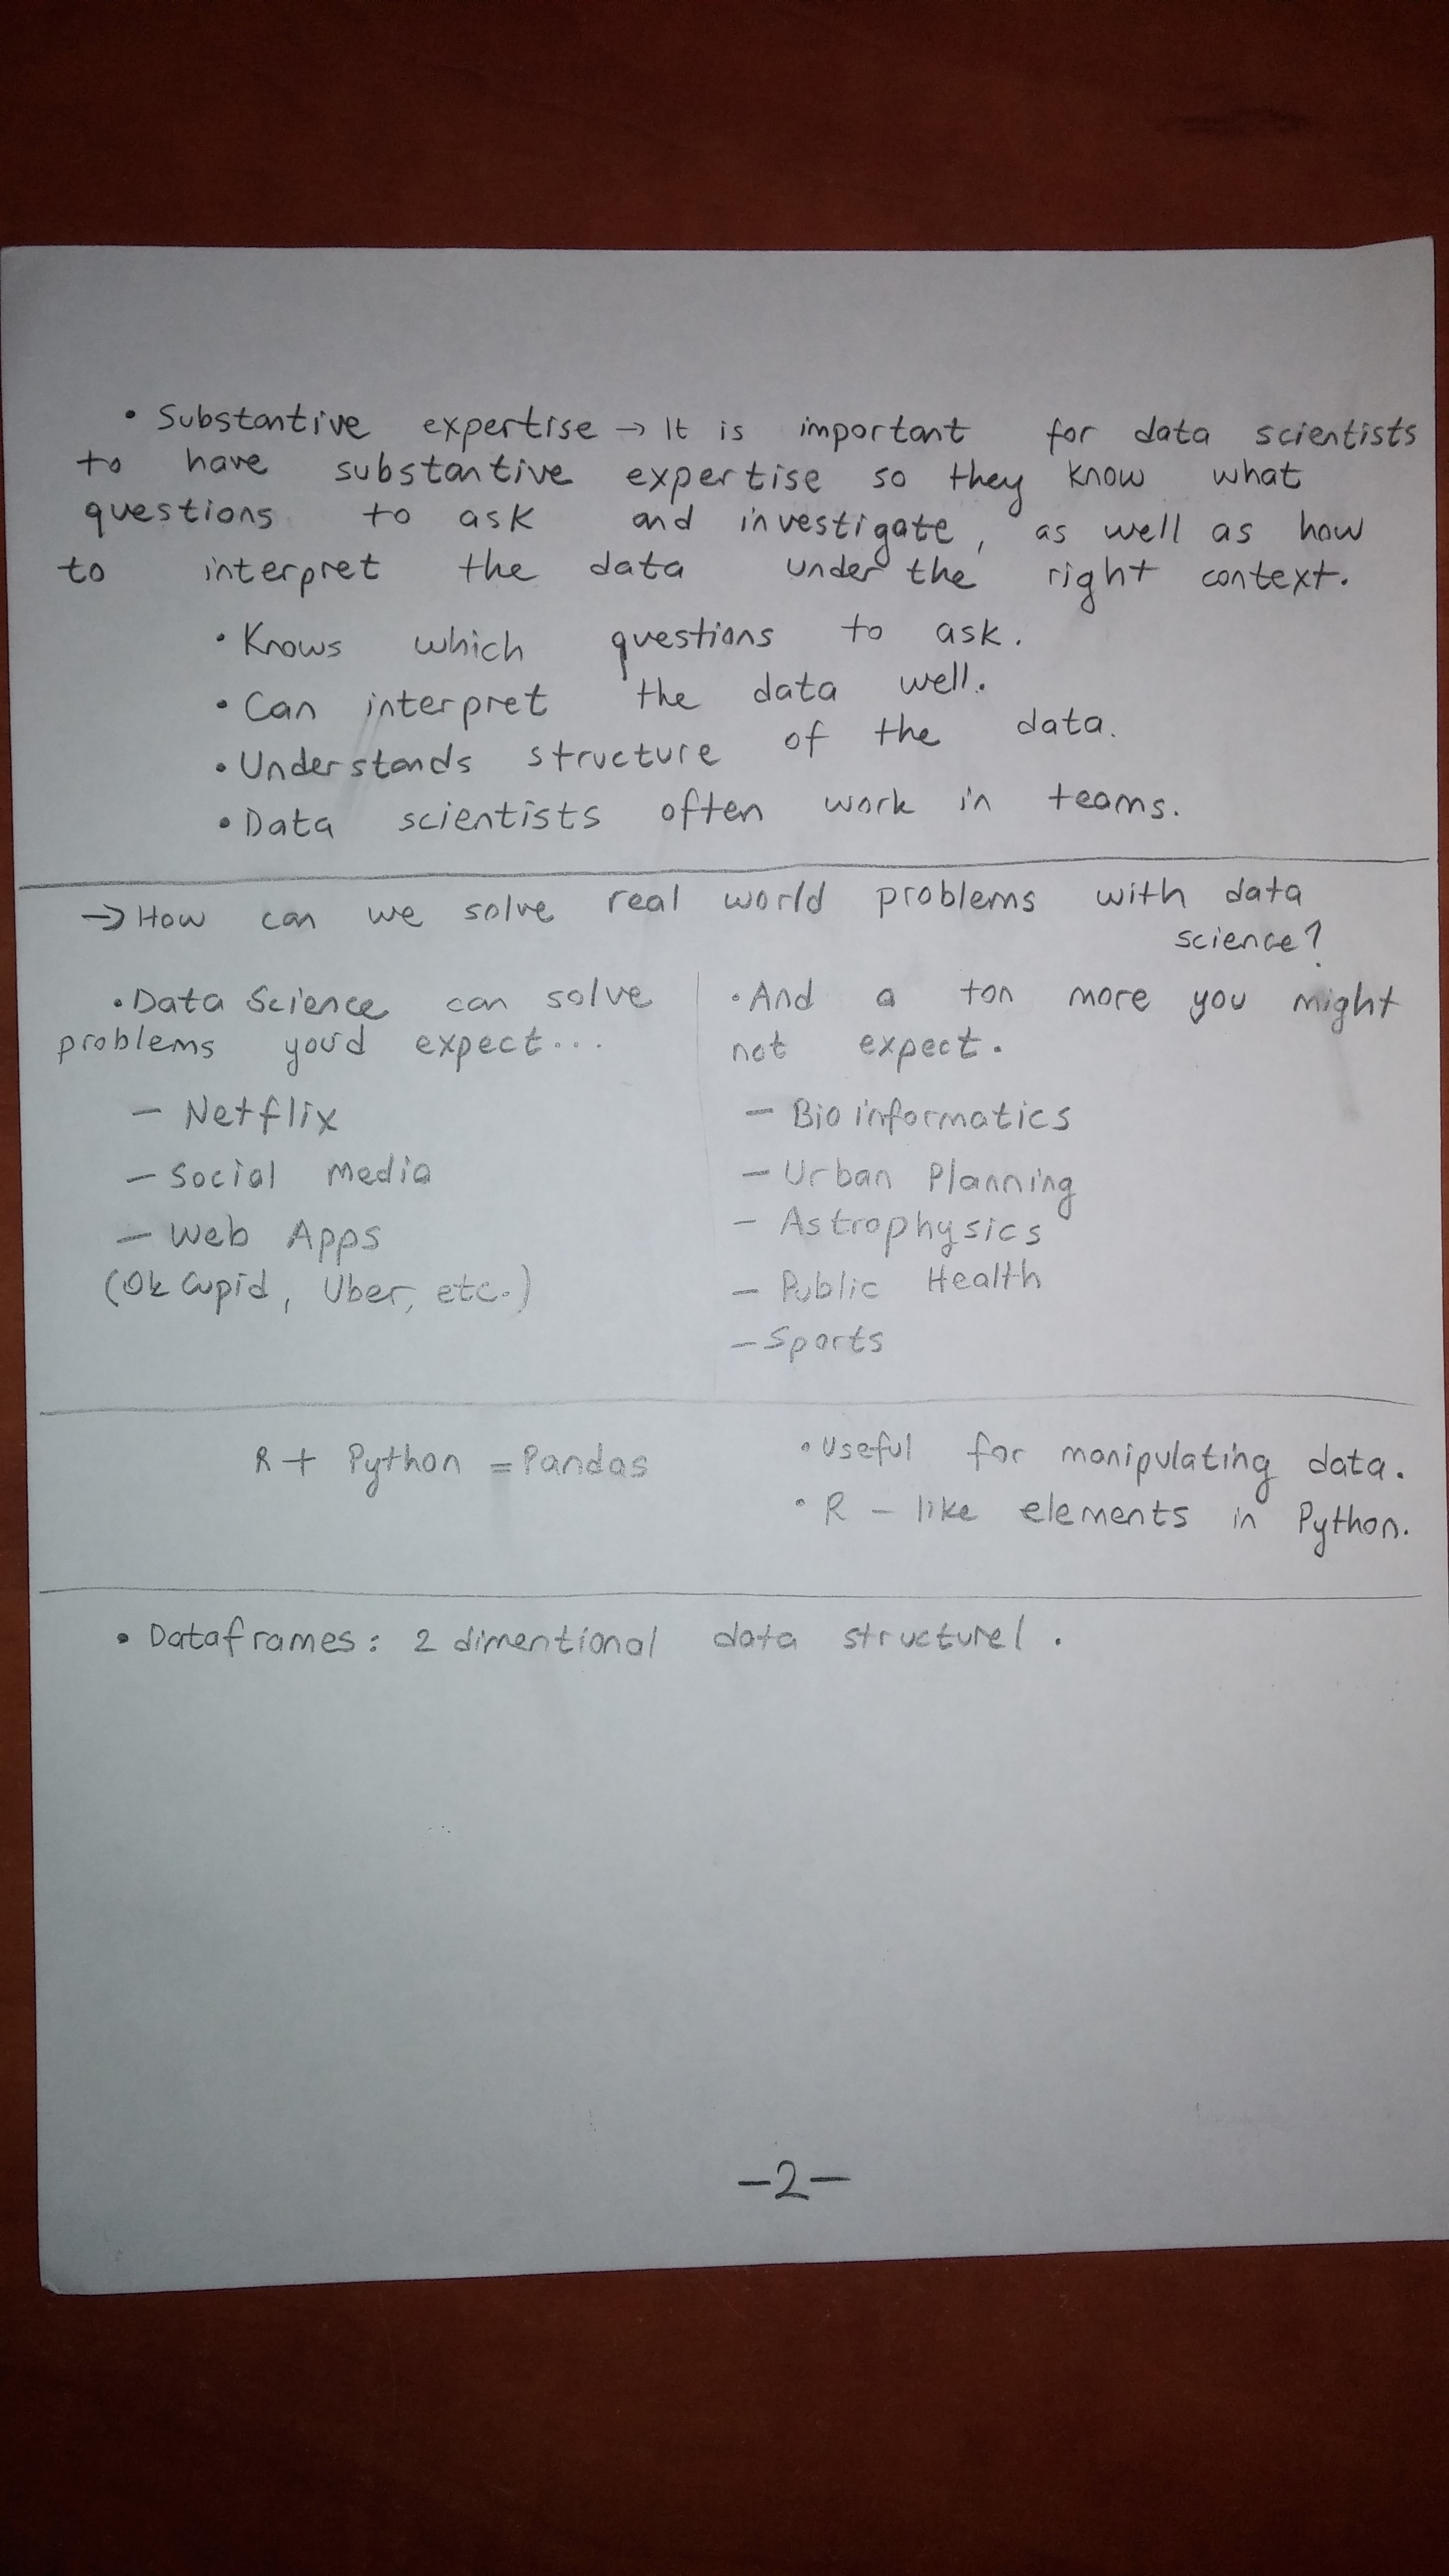 • Substantive expertise → It is important for data scientists
to have substantive expertise so they know what
questions to ask and investigate, as well as how
to interpret the data under the right context.
• Knows which questions to ask.
• Can interpret the data well.
• Understands structure of the data.
• Data scientists often work in teams.
→ How can we solve real world problems with data
science?
• Data Science can solve
problems you'd expect...
— Netflix
— Social Media
— Web Apps
(Ok Cupid, Uber, etc.)
• And a ton more you might
not expect.
— Bioinformatics
— Urban Planning
— Astrophysics
— Public Health
— Sports
R + Python = Pandas
• Useful for manipulating data.
• R - like elements in Python.
• Dataframes: 2 dimentional data structurel.
-2-